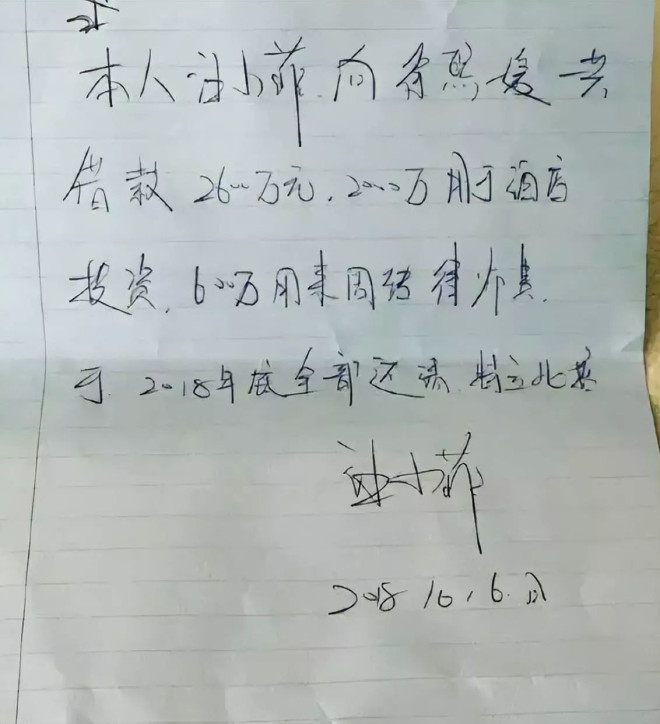 本人汪小菲向徐熙媛共
借款2600万元.2000万用于酒店
投资.600万用来周转律师费.
于.2018年底全部还清.特立此据
汪小菲
2018 10.6.日